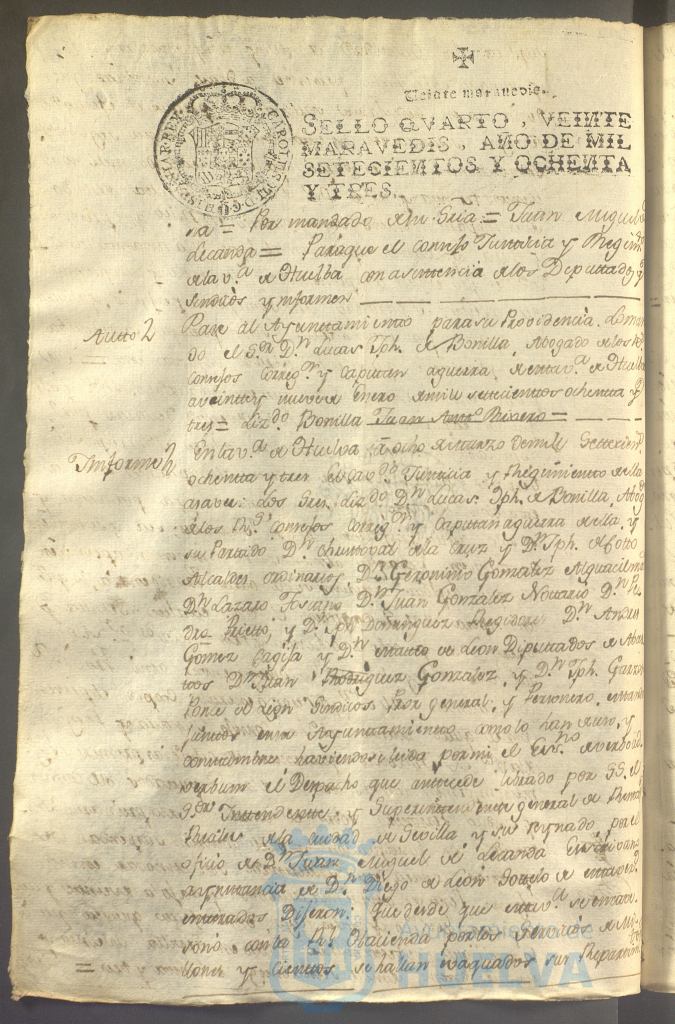 Veinte maravedis.
SELLO QVARTO, VEINTE
MARAVEDIS, AÑO DE MIL
SETECIENTOS Y OCHENTA
Y TRES.
CAROLUS III D.G. HISPANIAR. REX
= Por mandado de su Sria = Juan Miguel
Lecanda = Para que el conss.o Justicia y Regim.to
de la v.a de Huelba con asistencia de los Diputados y
sindicos ynformen
Autto 2
Pase al Ayunttamiento para su Providencia.
do el S.or D.n Lucas Jph. de Bonilla, Abogado de los R.s
consejos correg.or y capitan aguerra de esta v.a de Huelba
a veinte y nueve de Enero de mill settecientos ochenta y
tres = Liz.do Bonilla Juan Antt.o Rivero =
Ynforme 2
En la v.a de Huelva a ocho de marzo de mill settecien.s
ochenta y tres El cav.do Justicia y Regimiento de ella
a saver: Los Sres. Liz.do D.n Lucas Jph. de Bonilla, Abog.
de los R.s consejos correg.or y capitan aguerra de ella, y
su Partido D.n Christoval de la Cruz y D.n Jph. de Cotto
Alcaldes ordinarios, D.n Geronimo Gonzalez Alguacil m
D.n Lazaro Toscano D.n Juan Gonzalez D.n Pe
dro Prietto, y D.n Jph. Dominguez Regidores D.n Andres
Gomez y D.n de Leon Diputtados de Abas
ttos D.n Juan Rodriguez Gonzalez y D.n Jph. Garri
Ponce de Leon Sindicos Pror general, y Personero, estando
juntos en su Ayuntamiento como lo han de uso, y
costumbre haviendose leida por mi el Ess.no de verbo ad
verbum el Despacho que antecede librado por SS. el
S.or Inttendente y Superintendente general de Rentas
Reales de la ciudad de Sevilla y su Reynado por el
oficio de D.n Juan Miguel de Lecanda Escrivano
a ynstancia de D.n Diego de Leon Sotelo de esta
enterados Dijeron: Que desde que esta v.a se encave
sono con la R.l Hacienda por los servicios de Mi
llones y Cientos, se hallan
AYUNTAMIENTO DE
HUELVA